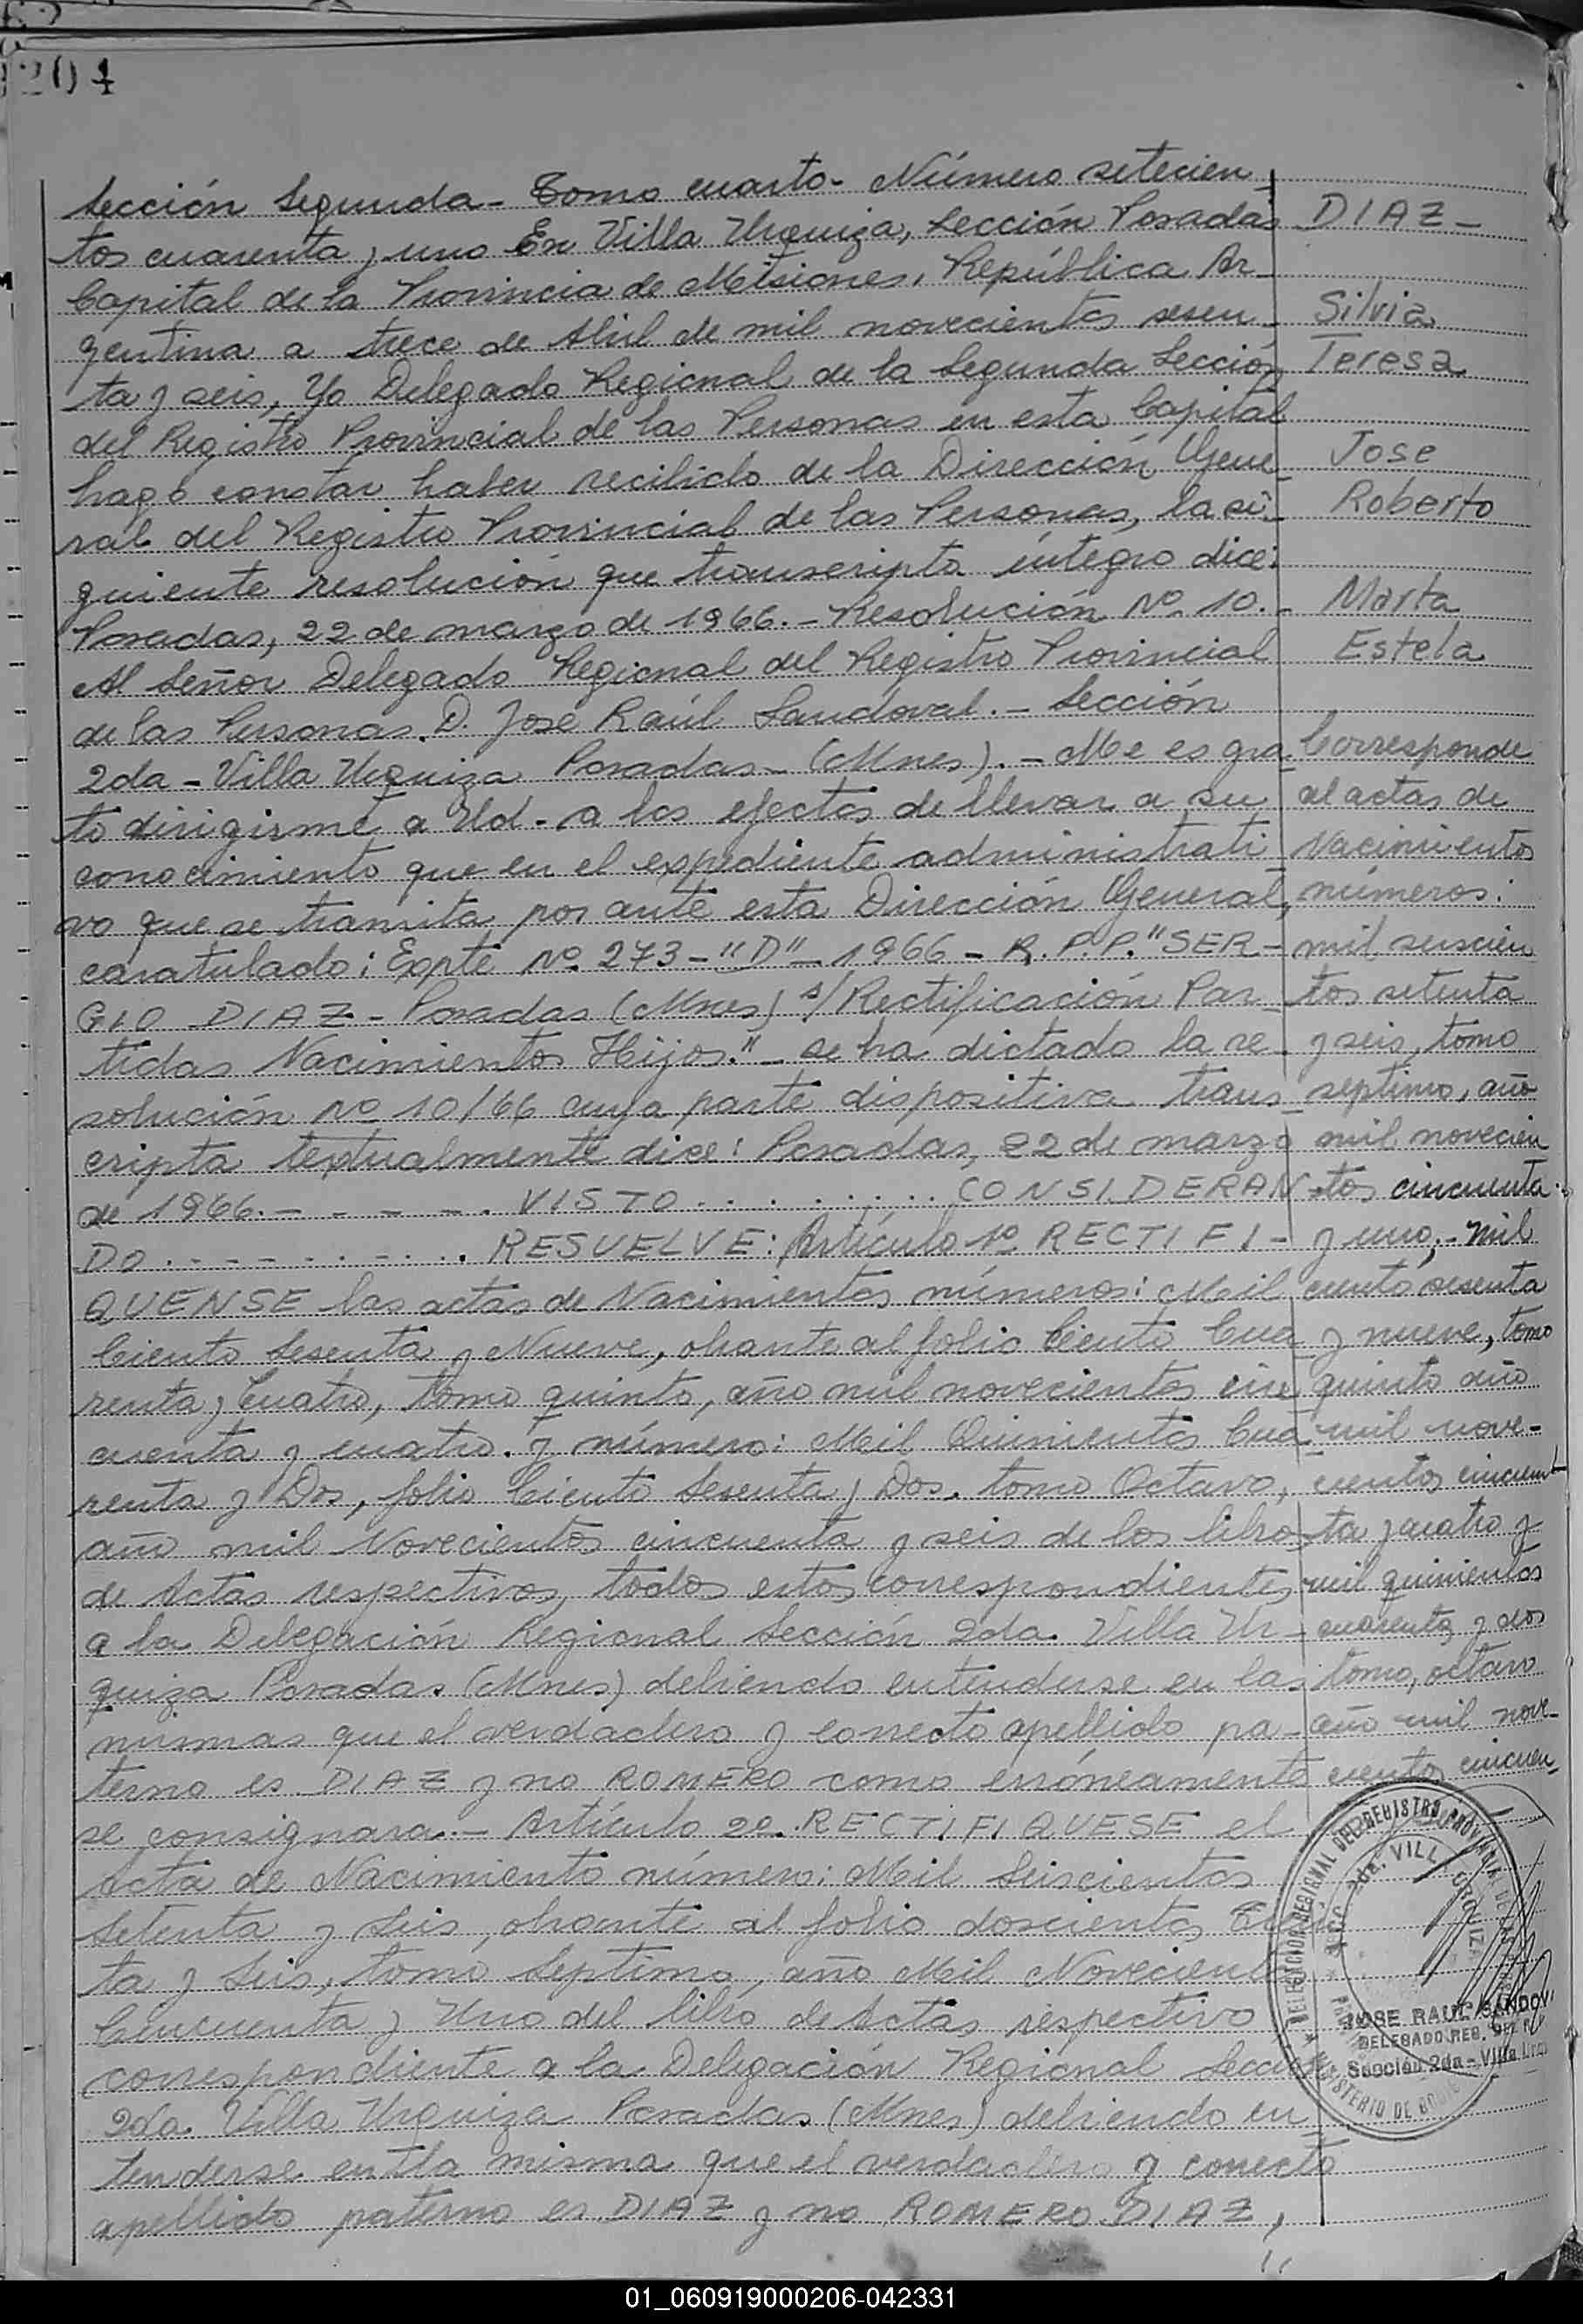 204
Sección Segunda - Tomo cuarto - Número setecien
tos cuarenta y uno En Villa Urquiza, Sección Posadas
Capital de la Provincia de Misiones, República Ar-
gentina a trece de Abril de mil novecientos sesen-
ta y seis, Yo Delegado Regional de la Segunda Sección
del Registro Provincial de las Personas en esta Capital
hago constar haber recibido de la Dirección Gene-
ral del Registro Provincial de las Personas, la si-
guiente resolución que transcripta íntegro dice:
Posadas, 22 de marzo de 1966. - Resolución Nº 10. -
Al Señor Delegado Regional del Registro Provincial
de las Personas. D. José Raúl Sandoval. - Sección
2da - Villa Urquiza Posadas - (Mnes). - Me es gra-
to dirigirme a Ud. a los efectos de llevar a su
conocimiento que en el expediente administrati
vo que se tramita por ante esta Dirección General,
caratulado: Expte Nº 273 - "D" - 1966 - R.P.P. "SER-
GIO DIAZ - Posadas (Mnes) s/Rectificación Par-
tidas Nacimientos Hijos." - se ha dictado la re-
solución Nº 10/66 cuya parte dispositiva trans-
cripta textualmente dice: Posadas, 22 de marzo
de 1966. - - - - - . VISTO . . . . . . . . . CONSIDERAN
DO . - - - . - . - . . RESUELVE: Artículo 1º RECTIFI-
QUENSE las actas de Nacimientos números: Mil
Ciento Sesenta y Nueve, obrante al folio Ciento Cua-
renta y Cuatro, tomo quinto, año mil novecientos cin
cuenta y cuatro. y número: Mil Quinientos Cua-
renta y Dos, folio Ciento Sesenta y Dos. tomo Octavo,
año mil Novecientos cincuenta y seis de los libros
de Actas respectivos, todos estos correspondientes
a la Delegación Regional Sección 2da. Villa Ur-
quiza Posadas (Mnes) debiendo entenderse en las
mismas que el verdadero y correcto apellido pa-
terno es DIAZ y no ROMERO como erróneamente
se consignara. - Artículo 2º. RECTIFIQUESE el
Acta de Nacimiento número: Mil Seiscientos
Setenta y Seis, obrante al folio doscientos
ta y Seis, tomo Septimo, año Mil Novecient
Cincuenta y Uno del libro de Actas respectivo
correspondiente a la Delegación Regional Sección
2da Villa Urquiza Posadas (Mnes) debiendo en
tenderse en la misma que el verdadero y correcto
apellido paterno es DIAZ y no ROMERO DIAZ,
DIAZ -
Silvia
Teresa
Jose
Roberto
Marta
Estela
Corresponde
al actas de
Nacimientos
números:
mil seiscien
tos setenta
y seis, tomo
septimo, año
mil novecien
tos cincuenta
y uno; - mil
ciento sesenta
y nueve, tomo
quinto año
mil nove-
cientos cincuen
ta y cuatro y
mil quinientos
cuarenta y dos
tomo, octavo
año mil nove-
cientos cincuen-
DELEGACION REGIONAL DEL REGISTRO PROVINCIAL DE
SECC. 2da. VILLA URQUIZA
JOSE RAUL SANDOV
DELEGADO REG. DEL R
Sección 2da - Villa Urq
01_060919000206-042331